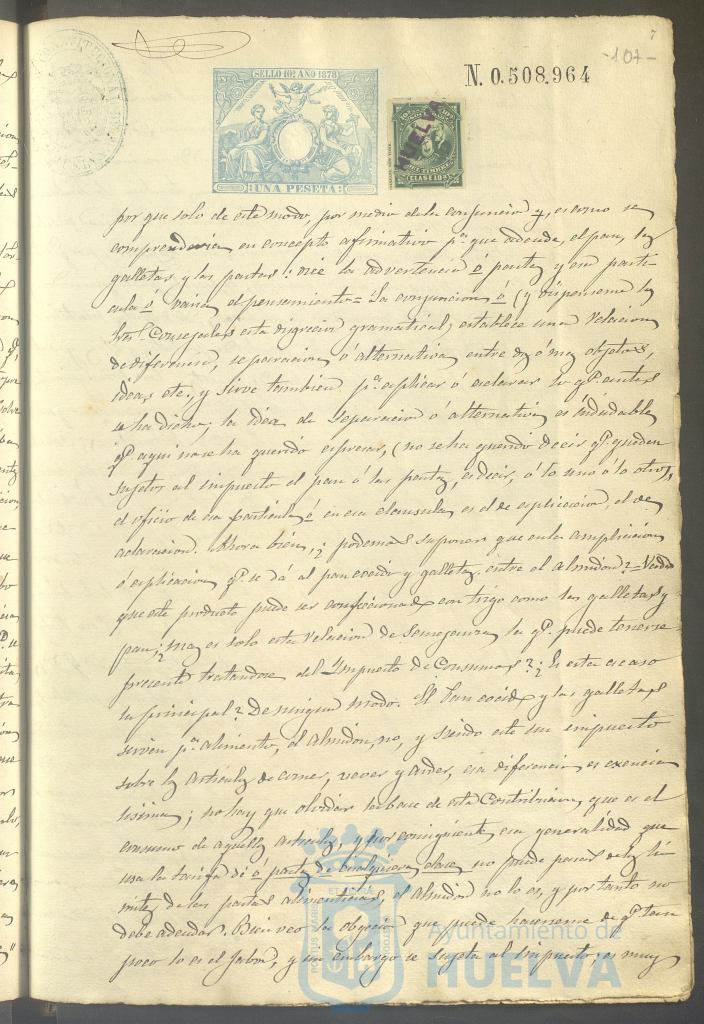 7
-107-
SELLO 10º AÑO 1878
UNA PESETA
N. 0.508.964
HUELVA
DEL TIMBRE
CLASE 10ª
por que solo de este modo, por medio de la conjuncion y, es como se
comprenderia en concepto afirmativo pª que adeude, el pan, las
galletas y las pastas: vice la advertencia ó pastas y esa parti-
cula ó varia el pensamiento = La conjuncion ó (y dispensenme los
Sres. Concejales esta digrecion gramatical) establece una relacion
de diferencia, separacion ó alternativa entre dos ó mas objetos,
ideas, etc., y sirve tambien pª esplicar ó aclarar lo qe. antes
se ha dicho; la idea de separacion ó alternativa es indudable
qe. aqui no se ha querido espresar, (no se ha querido decir qe. queden
sujetos al impuesto el pan ó las pastas, es decir, ó lo uno ó lo otro),
el oficio de esa particula ó en esa clausula es el de esplicacion, el de
aclaracion. Ahora bien, ¿podemos suponer que en la ampliacion
ó esplicacion qe. se dá al pan cocido y galletas, entre el Almidon? = Verdad
que este producto puede ser confeccionado con trigo como las galletas y
pan; ¿mas es solo esta relacion de semejanza la qe. puede tenerse
presente tratandose del Impuesto de Consumos? ¿Es esta acaso
la principal? De ningun modo. El Pan cocido y las galletas
sirven pª alimento, el Almidon, no, y siendo este un impuesto
sobre los articulos de comer, vever y arder, esa diferencia es esencia-
lisima; no hay que olvidar la base de esta Contribucion, que es el
consumo de aquellos articulos, y por consiguiente esa generalidad que
usa la tarifa de ó pastas de cualquiera clase no puede pasar de los li-
mites de las pastas alimenticias, el almidon no lo es, y por tanto no
debe adeudar. Bien veo la objecion que puede hacerseme de qe. tam-
poco lo es el Jabon, y sin embargo se sujeta al impuesto, es muy
Ayuntamiento de
HUELVA